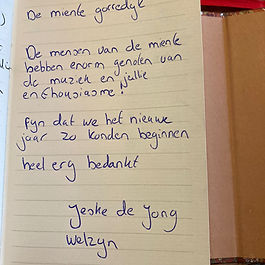 De miente gorredijk
De mensen van de miente
hebben enorm genoten van
de muziek en jullie
enthousiasme!
fijn dat we het nieuwe
jaar zo konden beginnen
heel erg bedankt
Jeske de Jong
Welzyn